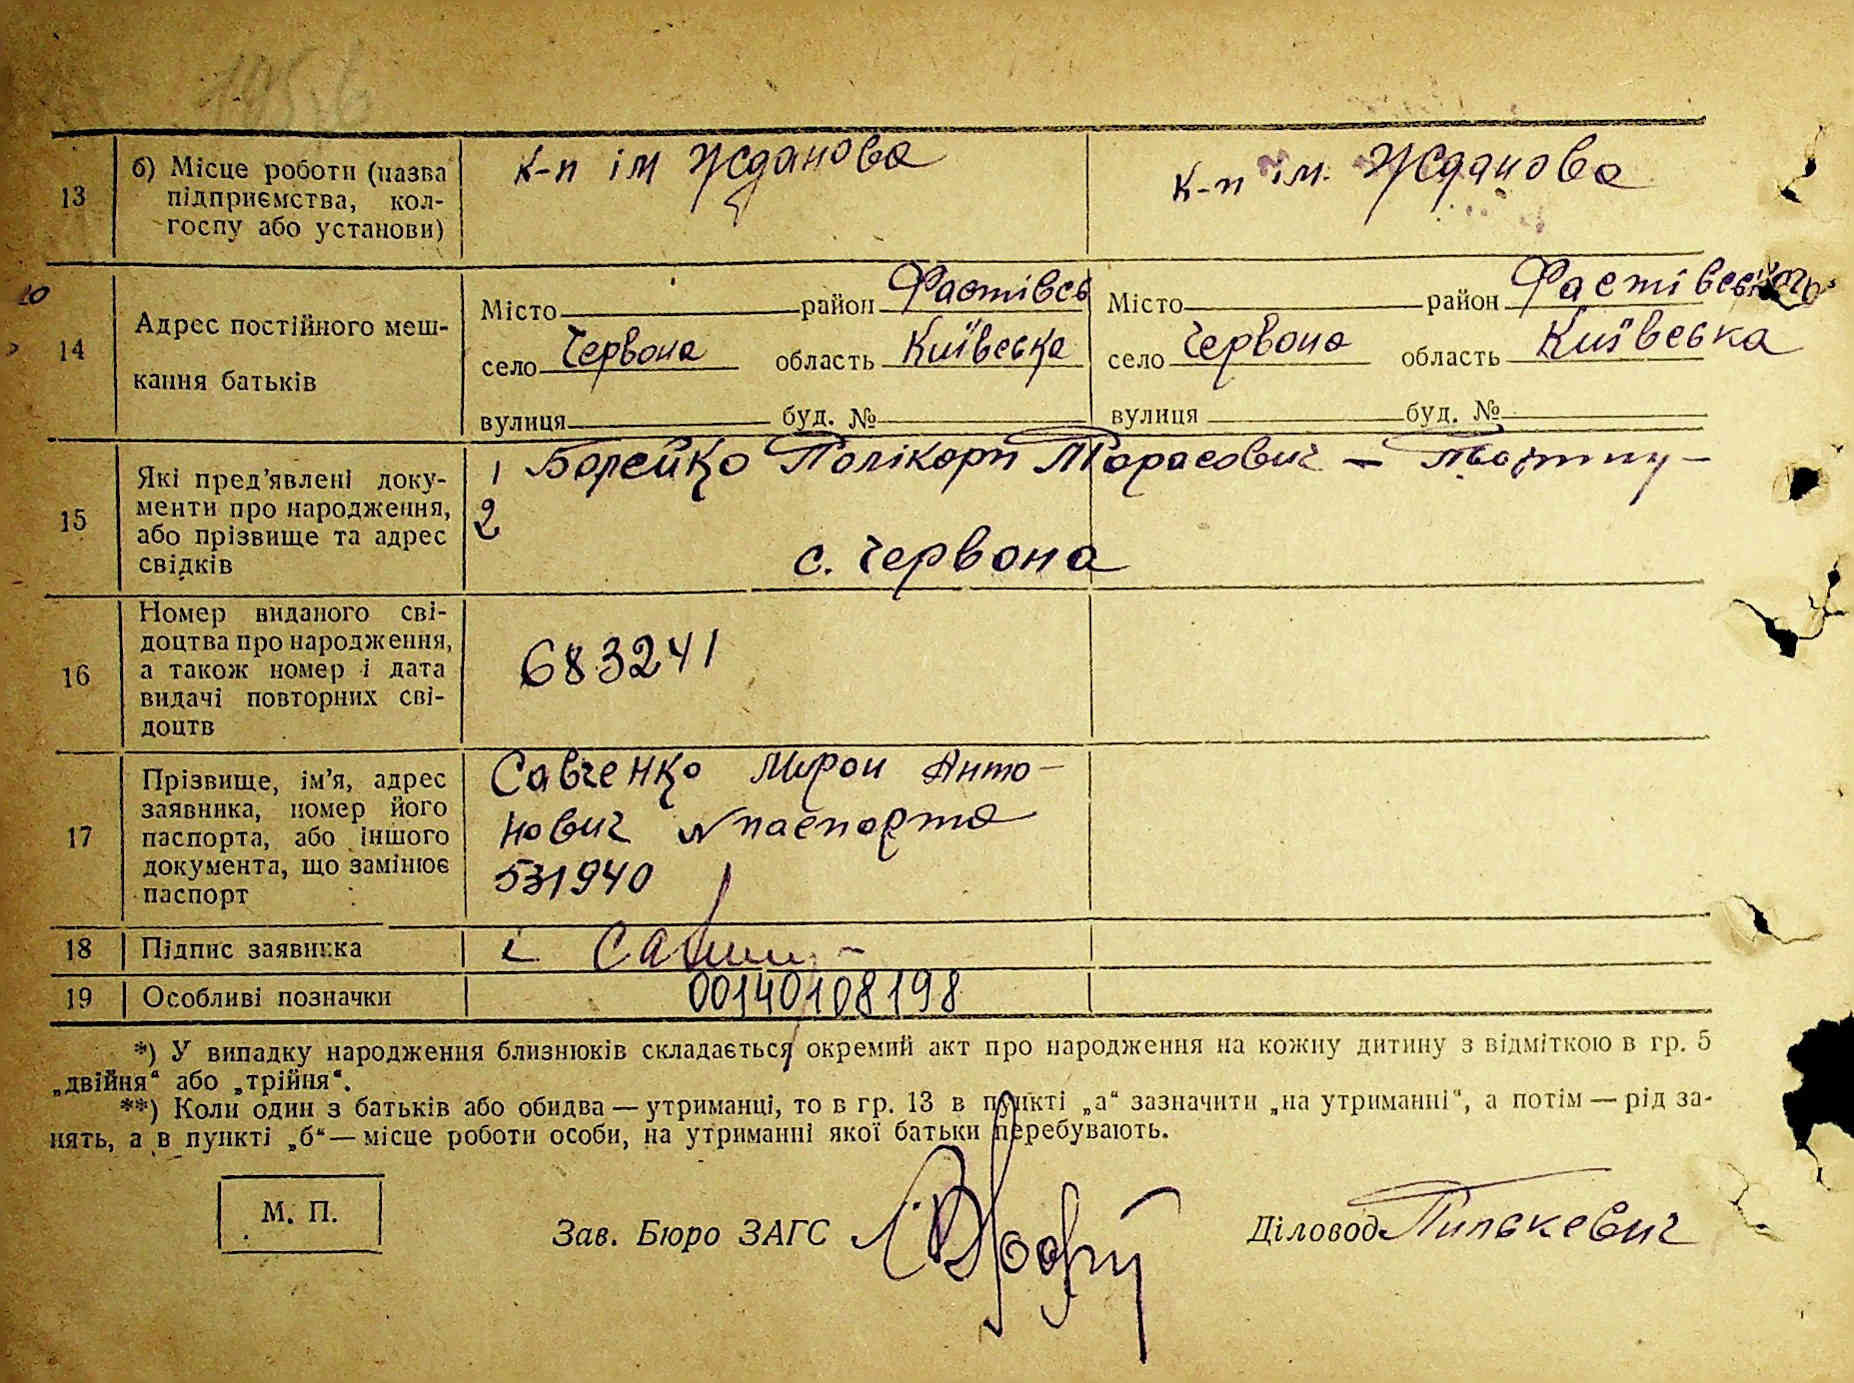 1956
13 б) Місце роботи (назва підприємства, колгоспу або установи) к-п ім Жданова к-п ім. Жданова
14 Адрес постійного мешкання батьків
Місто район Фастівсь Місто район Фастівського
село Червона область Київська село Червона область Київська
вулиця буд. № вулиця буд. №
15 Які пред'явлені документи про народження, або прізвище та адрес свідків
1 Борейко Полікарп Тарасович –
2
с. Червона
16 Номер виданого свідоцтва про народження, а також номер і дата видачі повторних свідоцтв
683241
17 Прізвище, ім'я, адрес заявника, номер його паспорта, або іншого документа, що замінює паспорт
Савченко Мирон Анто-
нович № паспорта
531940
18 Підпис заявника
19 Особливі позначки 00140108198
*) У випадку народження близнюків складається окремий акт про народження на кожну дитину з відміткою в гр. 5
„двійня“ або „трійня“.
**) Коли один з батьків або обидва — утриманці, то в гр. 13 в пункті „а“ зазначити „на утриманні“, а потім — рід за-
нять, а в пункті „б“ — місце роботи особи, на утриманні якої батьки перебувають.
М. П.
Зав. Бюро ЗАГС Діловод Пилькевич